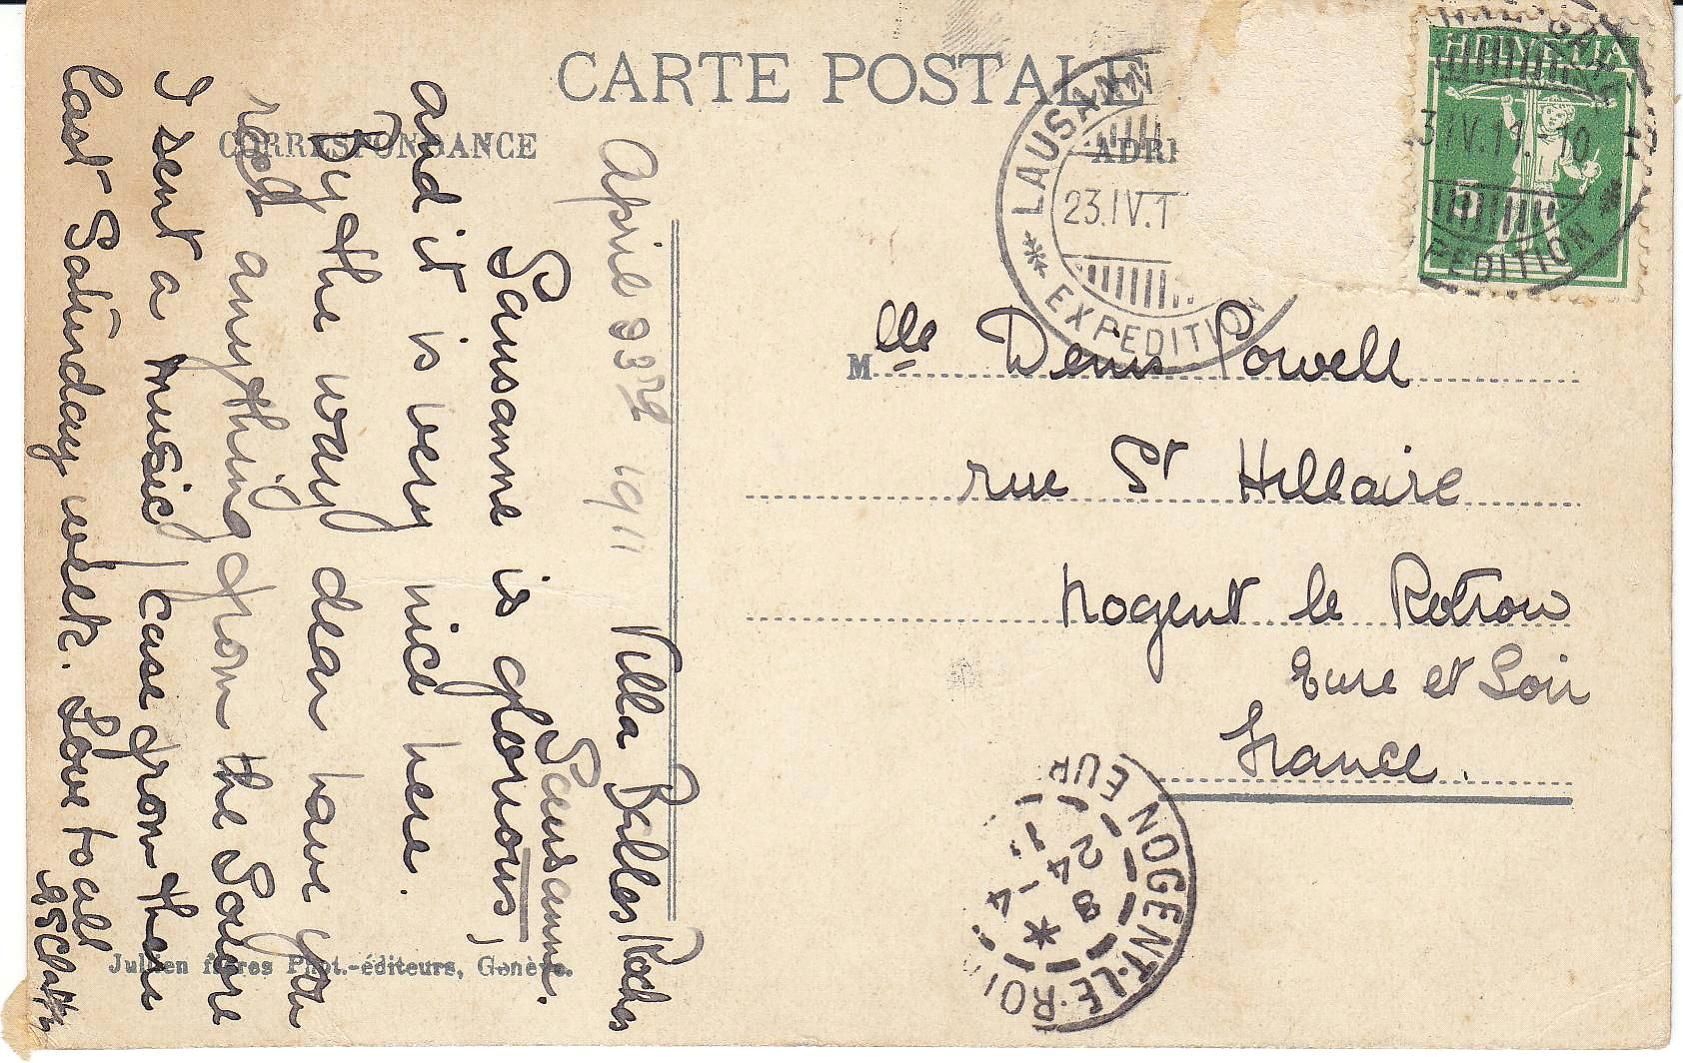 CARTE POSTALE
CORRESPONDANCE
ADR
April 23rd 1911 Villa Belles Roches
Lausanne.
Lausanne is glorious,
and it is very nice here.
By the way dear have you
rec'd anything from the Louvre
I sent a music case from there
last Saturday week. Love to all
Julien frères Phot.-éditeurs, Genève.
HELVETIA
5
3.IV.11.-10
PEDITION
LAUSANN
23.IV.1
EXPEDITION
Mlle Denis Powell
rue St Hillaire
Nogent le Rotrou
Eure et Loir
France.
NOGENT-LE-ROI
EUR
24
4